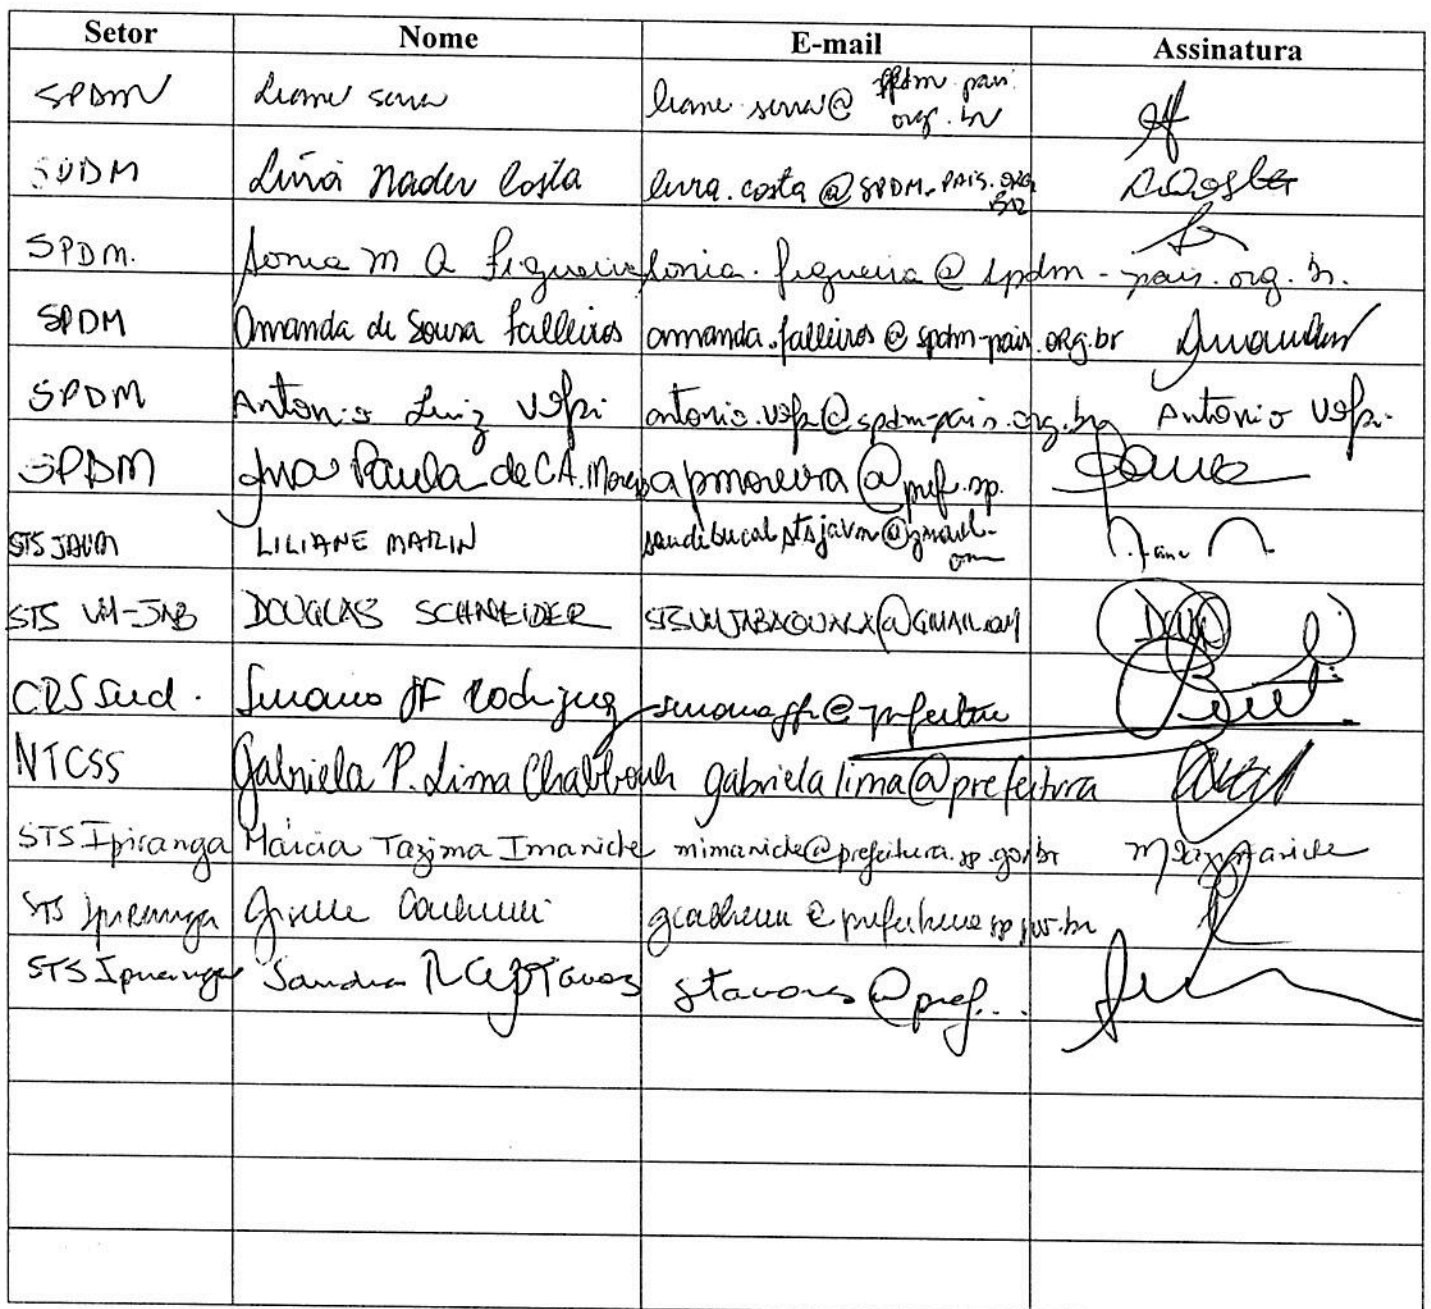 Setor Nome E-mail Assinatura
SPDM liane serra@ spdm-pais.
org.br
SPDM Lívia Nader Costa livia.costa@SPDM-PAIS.ORG
BR
SPDM. Sonia M A Figueira sonia.figueira@spdm-pais.org.br.
SPDM Amanda de Sousa Falleiros amanda.falleiros@spdm-pais.org.br Amanda
SPDM Antonio Luiz Volpi antonio.volpi@spdm-pais.org.br Antonio Volpi.
SPDM Ana Paula de C.A. Moreira apmoreira@pref.sp.
STS JAVM LILIANE MARIN saudebucalstsjavm@gmail.
com
STS VM-JAB DOUGLAS SCHNEIDER @GMAIL.COM
CRS Sud. JF Rodrigues @prefeitura
NTCSS Gabriela P. Lima Chabbouh gabrielalima@prefeitura
STS Ipiranga Márcia Tazima Imaniche mimaniche@prefeitura.sp.gov.br
STS Ipiranga Giselle @prefeitura sp gov.br
STS Ipiranga Sandra Tavares stavares@pref...